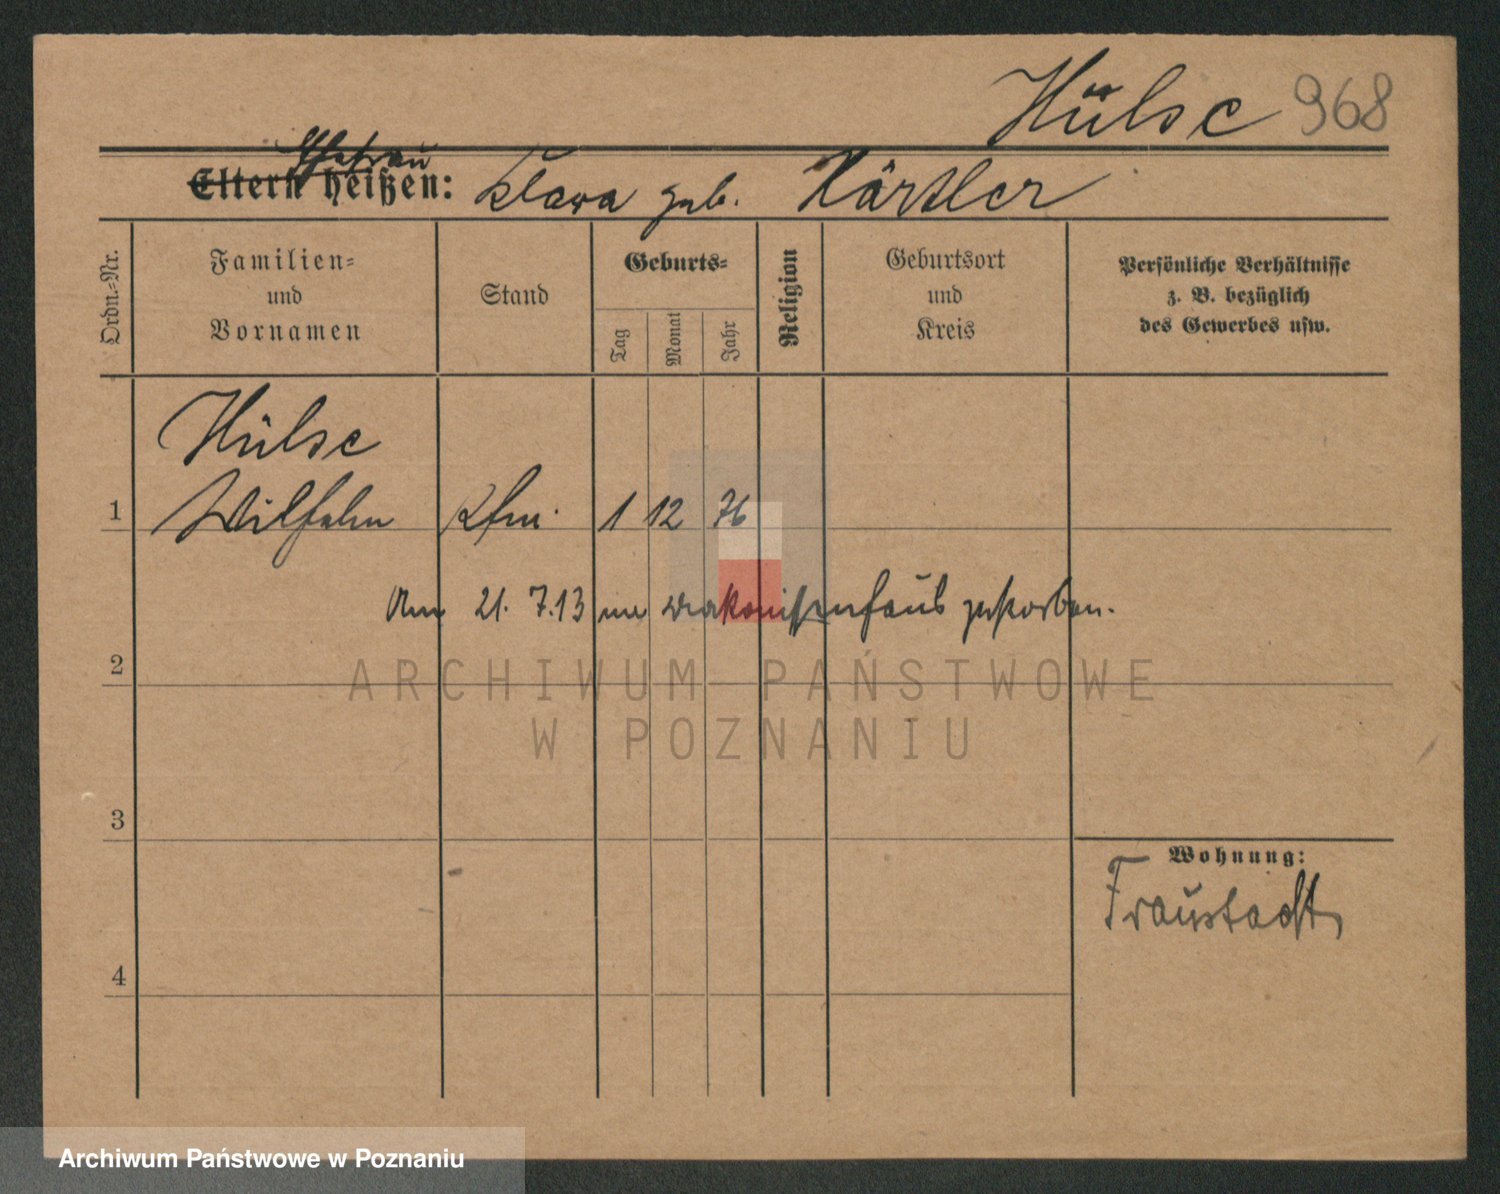 Hülse 968
Ehefrau
Eltern heißen: Klara geb. Härtler
Ordn.-Nr.
Familien-
und
Vornamen
Stand
Geburts-
Tag
Monat
Jahr
Religion
Geburtsort
und
Kreis
Persönliche Verhältnisse
z. B. bezüglich
des Gewerbes usw.
Hülse
1 Wilhelm Kfm. 1 12 76
Am 21. 7. 13 im Diakonissenhaus gestorben.
2
ARCHIWUM PAŃSTWOWE
W POZNANIU
3
Wohnung:
Fraustadt
4
Archiwum Państwowe w Poznaniu